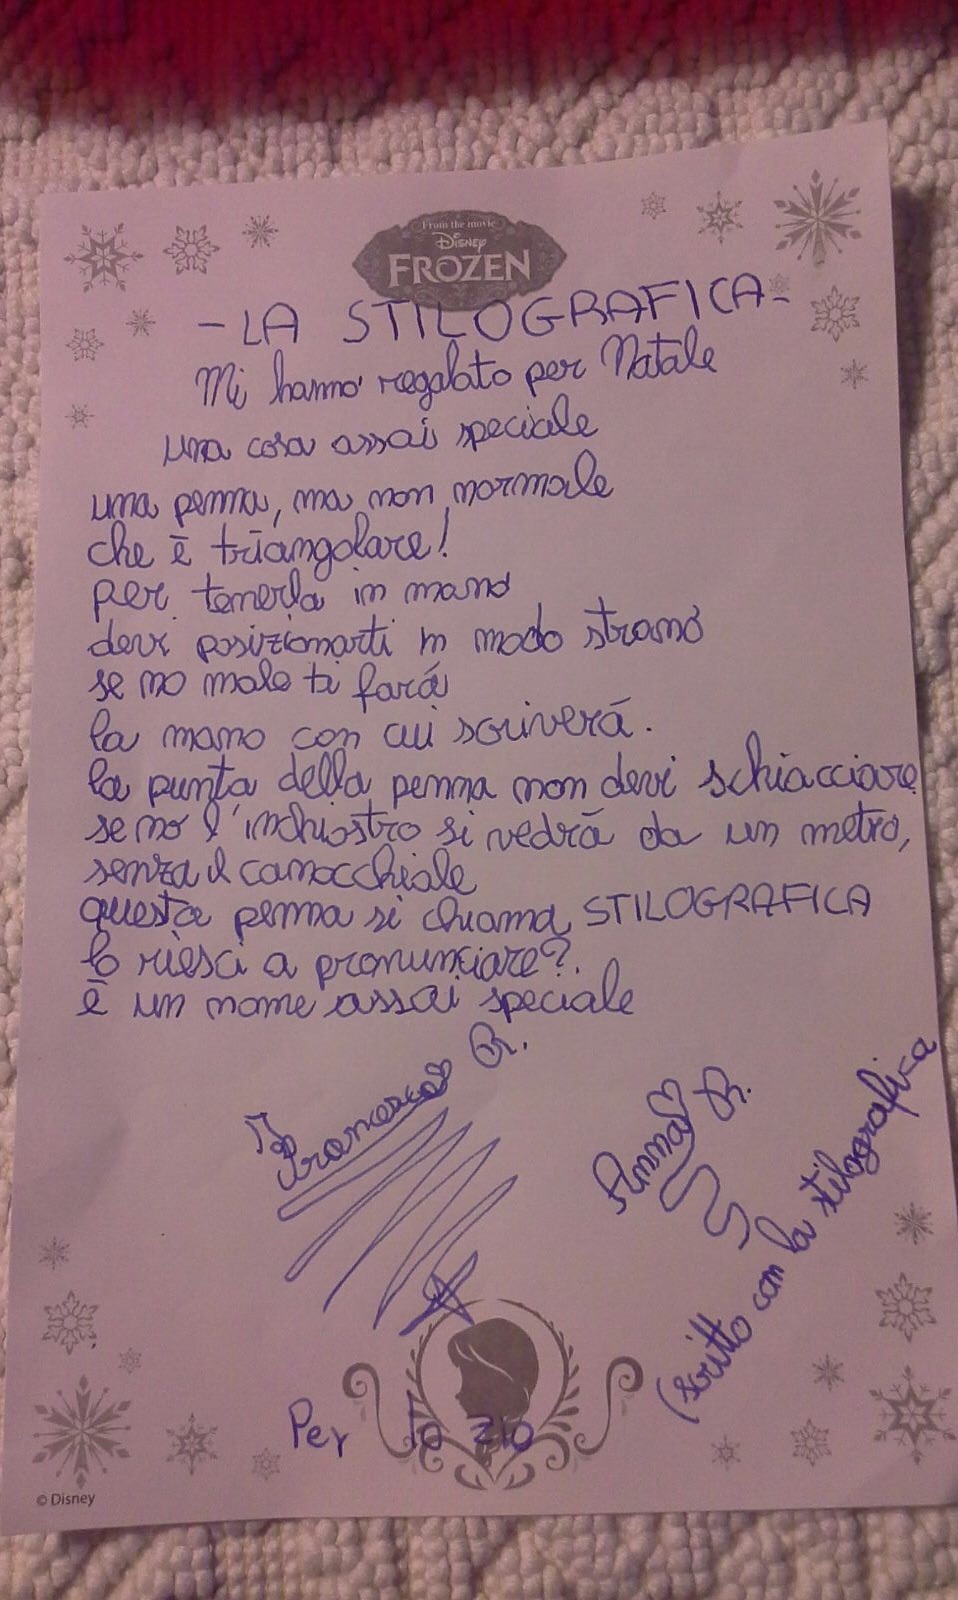 From the movie
Disney
FROZEN
- LA STILOGRAFICA -
Mi hanno regalato per Natale
una cosa assai speciale
una penna, ma non normale
che è triangolare!
per tenerla in mano
devi posizionarti in modo strano
se no male ti fará
la mano con cui scriverá.
la punta della penna non devi schiacciare
se no l'inchiostro si vedrá da un metro,
senza il canocchiale
questa penna si chiama STILOGRAFICA
lo riesci a pronunciare?
è un nome assai speciale
Francesca R.
Anna R.
(scritto con la stilografica
Per lo zio
© Disney